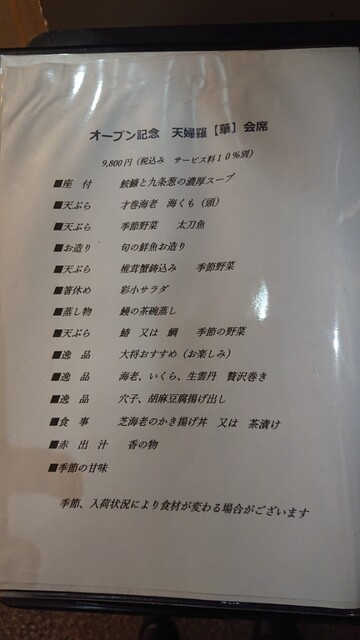 オープン記念 天婦羅【華】会席
9,800円(税込み サービス料10%別)
■座 付 鮟鱇と九条葱の濃厚スープ
■天ぷら 才巻海老 海くも(頭)
■天ぷら 季節野菜 太刀魚
■お造り 旬の鮮魚お造り
■天ぷら 椎茸蟹鋳込み 季節野菜
■箸休め 彩小サラダ
■蒸し物 鰻の茶碗蒸し
■天ぷら 鰆 又は 鯛 季節の野菜
■逸 品 大将おすすめ(お楽しみ)
■逸 品 海老、いくら、生雲丹 贅沢巻き
■逸 品 穴子、胡麻豆腐揚げ出し
■食 事 芝海老のかき揚げ丼 又は 茶漬け
■赤 出 汁 香の物
■季節の甘味
季節、入荷状況により食材が変わる場合がございます